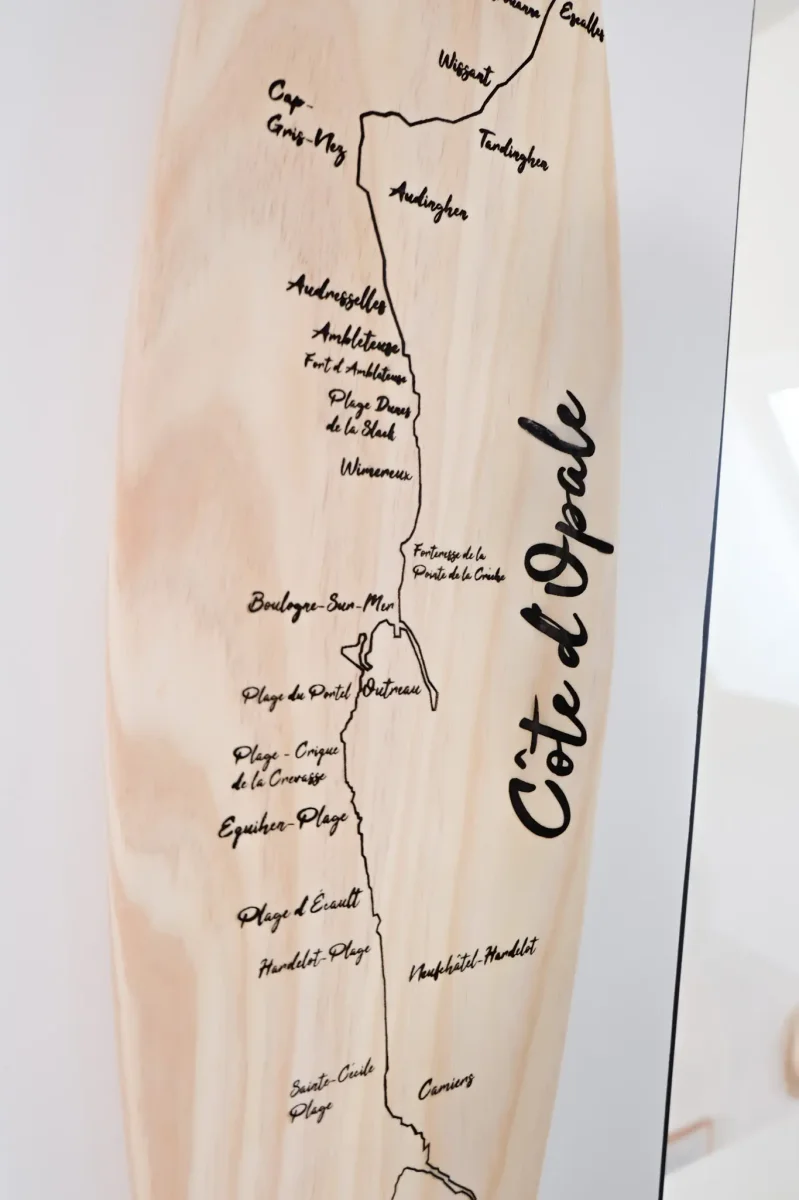 Escalles
Wissant
Cap-
Gris-Nez
Tardinghen
Audinghen
Audresselles
Ambleteuse
Fort d Ambleteuse
Plage Dunes
de la Slack
Wimereux
Forteresse de la
Pointe de la Crèche
Boulogne-Sur-Mer
Plage du Portel
Outreau
Plage - Crique
de la Crevasse
Equihen-Plage
Côte d Opale
Plage d Écault
Hardelot-Plage
Neufchâtel-Hardelot
Sainte-Cécile
Plage
Camiers